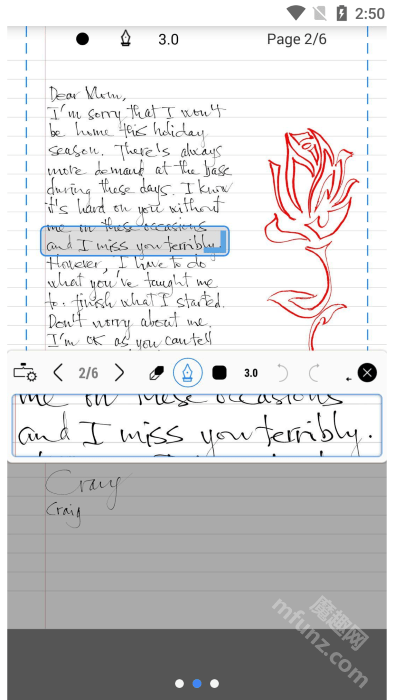 2:50
3.0
Page 2/6
Dear Mom,
I'm sorry that I won't
be home this holiday
season. There's always
more demand at the base
during these days. I know
it's hard on you without
me on these occasions
and I miss you terribly.
However, I have to do
what you've taught me
to: finish what I started.
Don't worry about me.
I'm OK as you can tell
2/6
3.0
me on these occasions
and I miss you terribly.
Craig
Craig
魔趣网
mfunz.com